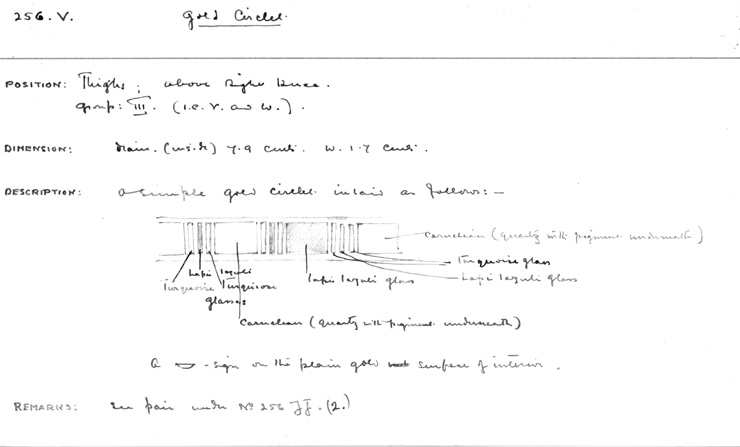 256. V. Gold Circlet.
POSITION: Thighs; above right knee.
group: III. (i.e. V. and W.).
DIMENSION: diam. (inside) 7.9 cents. W. 1.7 cents.
DESCRIPTION: A simple gold circlet inlaid as follows:—
Carnelian (quartz with pigment underneath)
Turquoise glass
Lapis lazuli glass
Lapis lazuli
Turquoise Turquoise
glasses
Lapis lazuli glass
Carnelian (quartz with pigment underneath)
A -sign on the plain gold surface of interior.
REMARKS: See pair under No 256 JJ. (2.)